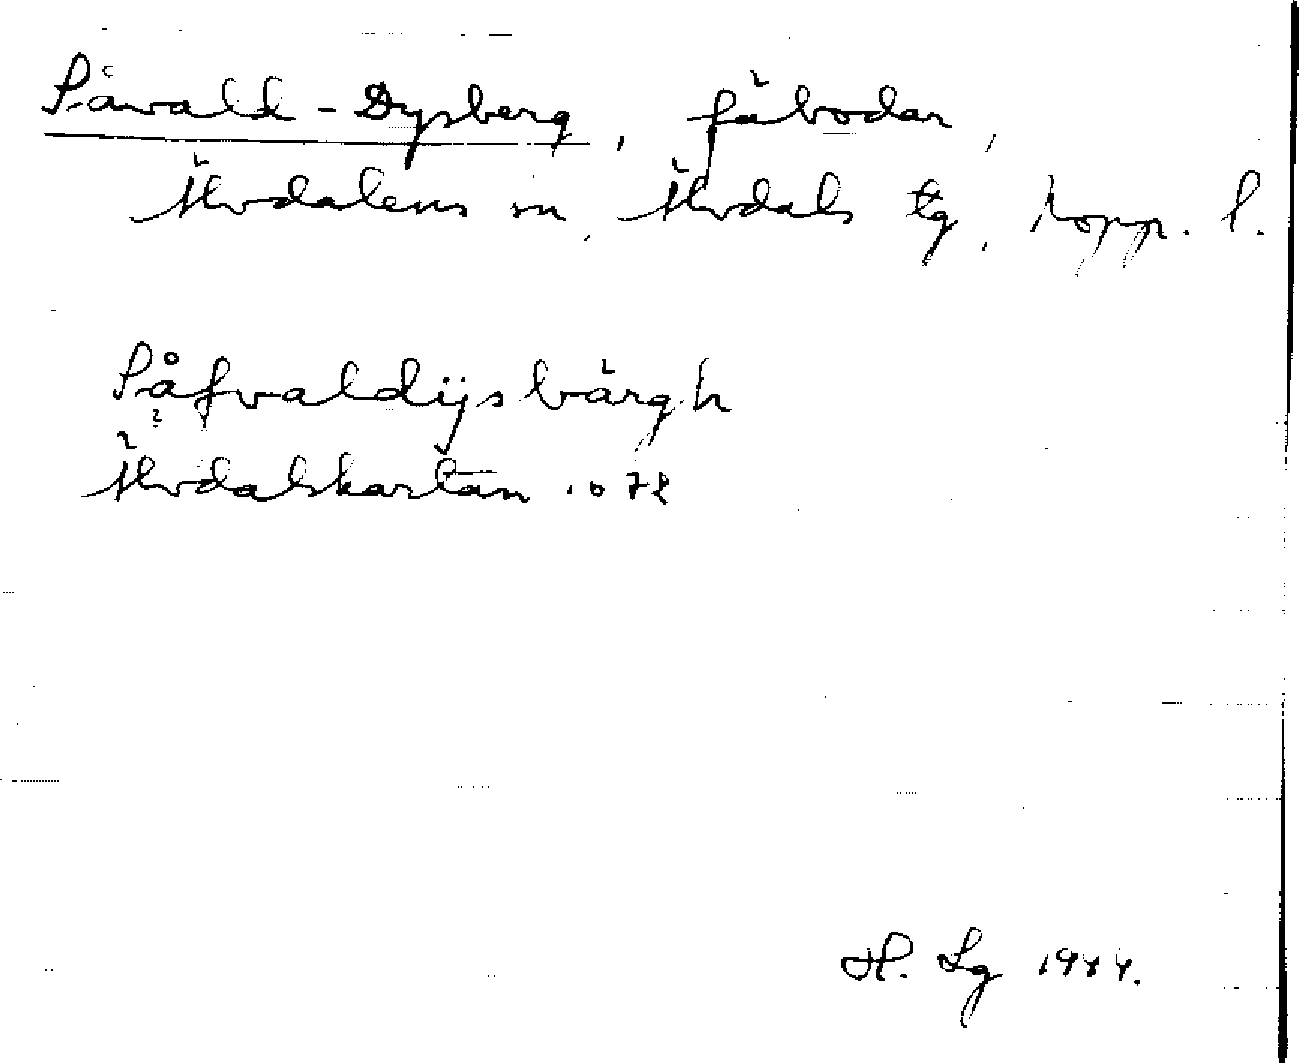 Påvald-Dysberg, fäbodar,
Älvdalens sn, Älvdals tg, Kopp. l.
Påfvaldijsbärgh
Älvdalskartan 1672
H. Lg 1944.